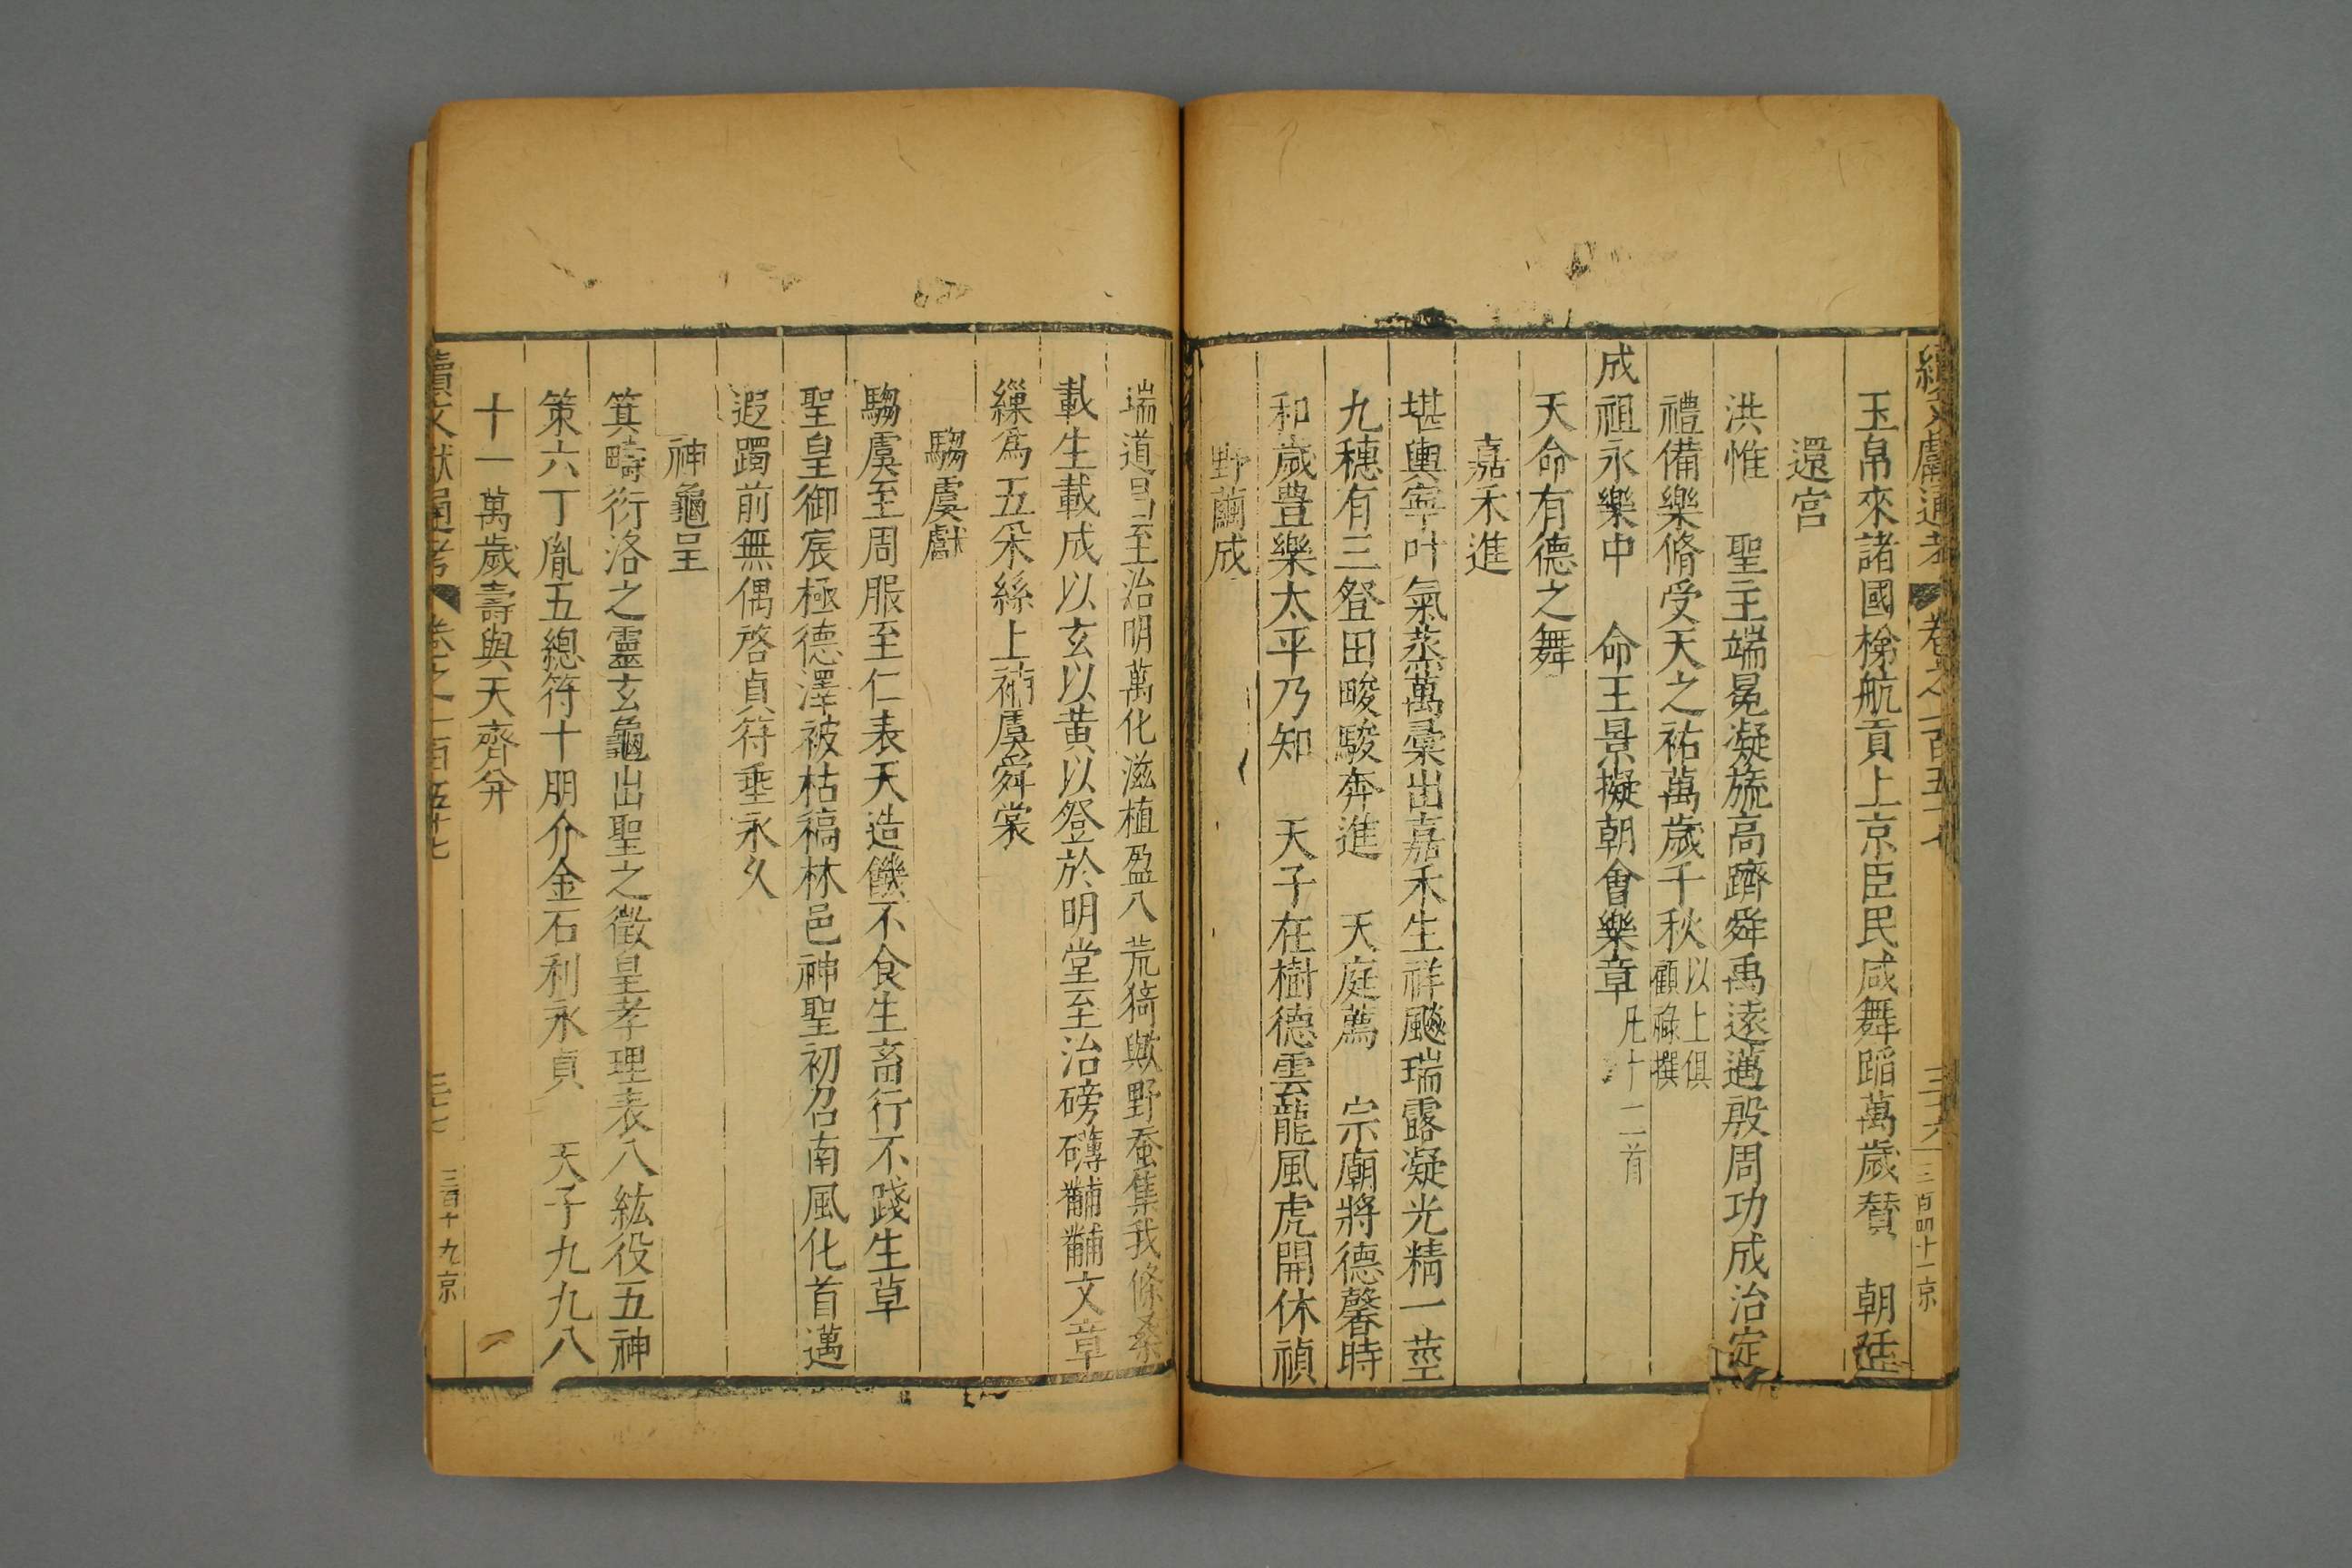 續文獻通考 卷之二百五十七 三六 三百四十二京
玉帛來諸國梯航貢上京臣民咸舞蹈萬歲賛 朝廷
還宫
洪惟 聖主端冕凝旒高躋舜禹遠邁殷周功成治定
禮備樂脩受天之祐萬歲千秋以上俱顧祿撰
成祖永樂中 命王景擬朝會樂章凡十二首
天命有德之舞
嘉禾進
堪輿寧叶氣蒸萬彙出嘉禾生祥飈瑞露凝光精一莖
九穗有三登田畯駿奔進 天庭薦 宗廟將德馨時
和歲豊樂太平乃知 天子在樹德雲龍風虎開休禎
野繭成
端道昌至治明萬化滋植盈八荒猗歟野蚕集我條桑
載生載成以玄以黄以登於明堂至治磅礴黼黼文章
繅爲五采絲上補虞舜裳
騶虞獻
騶虞至周服至仁表天造饑不食生畜行不踐生草
聖皇御宸極德澤被枯稿林邑神聖初召南風化首邁
遐躅前無偶啓貞符埀永久
神龜呈
箕疇衍洛之靈玄龜出聖之徵皇孝理表八紘役五神
策六丁胤五總符十朋介金石利永貞 天子九九八
十一萬歲壽與天齊分
續文獻通考 卷之二百五十七 三七 三百十九京